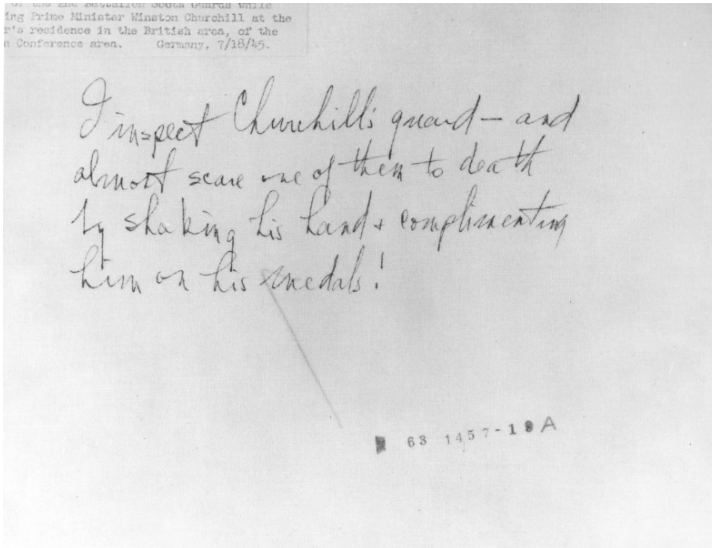 of the 2nd Battalion Scots Guards while
ing Prime Minister Winston Churchill at the
r's residence in the British area, of the
e Conference area. Germany, 7/18/45.
I inspect Churchill's guard — and
almost scare one of them to death
by shaking his hand + complimenting
him on his medals!
63 1457-19A